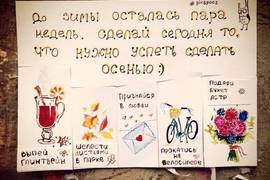 До зимы осталась пара
недель. Сделай сегодня то,
что нужно успеть сделать
осенью :)
выпей
глинтвейн
шелести
листьями
в парке
признайся
в любви
прокатись
на
велосипеде
подари
букет
астр